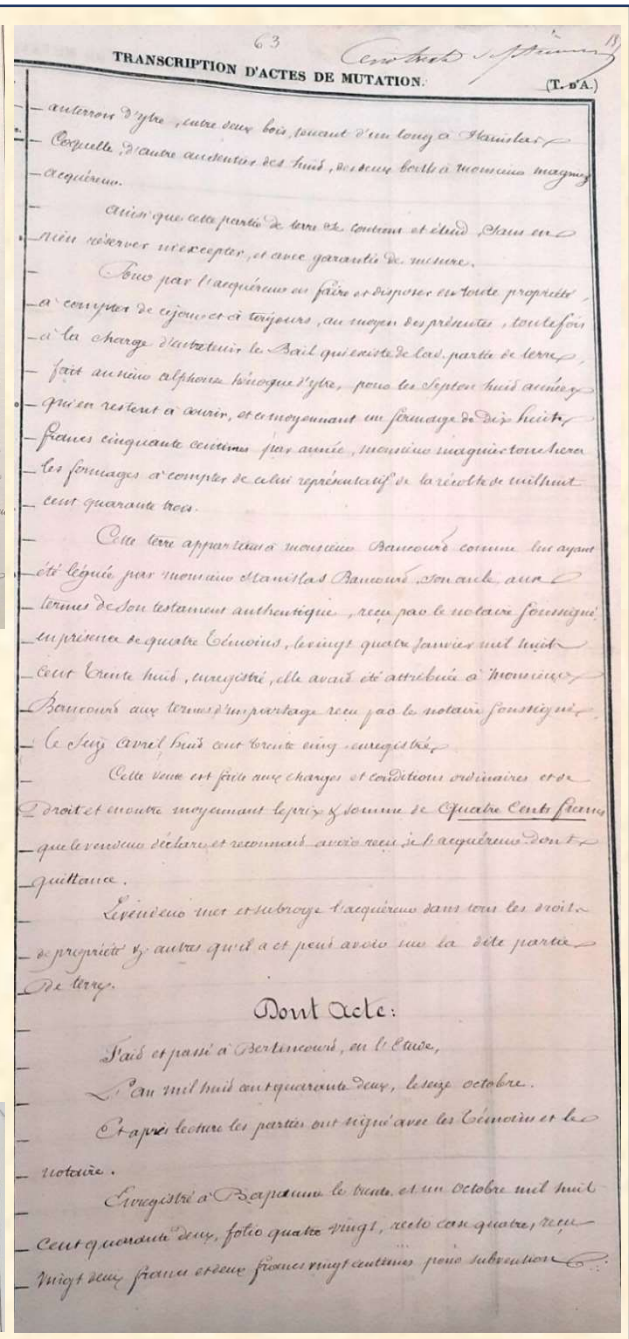 63
Cent trente septième
TRANSCRIPTION D'ACTES DE MUTATION.
(T. D'A.)
au terroir d'ytre, entre deux bois, tenant d'un long à Stanislas
Coquelle, d'autre au sentier des huid, des deux bouts à monsieur magniez
acquéreur.
Ainsi que cette partie de terre se contient et étend, sans en
rien réserver ni excepter, et avec garantie de mesure.
Pour par l'acquéreur en faire et disposer en toute propriété,
à compter de ce jour et à toujours, au moyen des présentes, toutefois
à la charge d'entretenir le Bail qui existe de lad. partie de terre,
fait au sieur alphonse d'ytre, pour les Sept ou huid années
qui en restent à courir, et ce moyennant un fermage de dix huit
francs cinquante centimes par année, monsieur magnier touchera
les fermages à compter de celui représentatif de la récolte de mil huit
cent quarante trois.
Cette terre appartient à monsieur Bancourd comme lui ayant
été léguée par monsieur Stanislas Bancourd, son oncle aux
termes de son testament authentique, reçu par le notaire soussigné
en présence de quatre témoins, le vingt quatre Janvier mil huit
cent trente huid, enregistré, elle avait été attribuée à monsieur
Bancourd aux termes d'un partage reçu par le notaire soussigné
le Seize avril huid cent trente cinq enregistré,
Cette vente est faite aux charges et conditions ordinaires et de
Droit et en outre moyennant le prix & somme de Quatre Cents francs
que le vendeur déclare et reconnaid avoir reçu de l'acquéreur dont
quittance.
Le vendeur met et subroge l'acquéreur dans tous les droits
de propriété & autres qu'il a et peud avoir sur la dite partie
De terre.
Dont Acte:
Faid et passé à Bertincourd, en l'Etude,
L'an mil huid cent quarante deux, le seize octobre.
Et après lecture les parties ont signé avec les témoins et le
notaire.
Enregistré à Bapaume le trente et un octobre mil huit
cent quarante deux, folio quatre vingt, recto case quatre, reçu
vingt deux francs et deux francs vingt centimes pour subvention